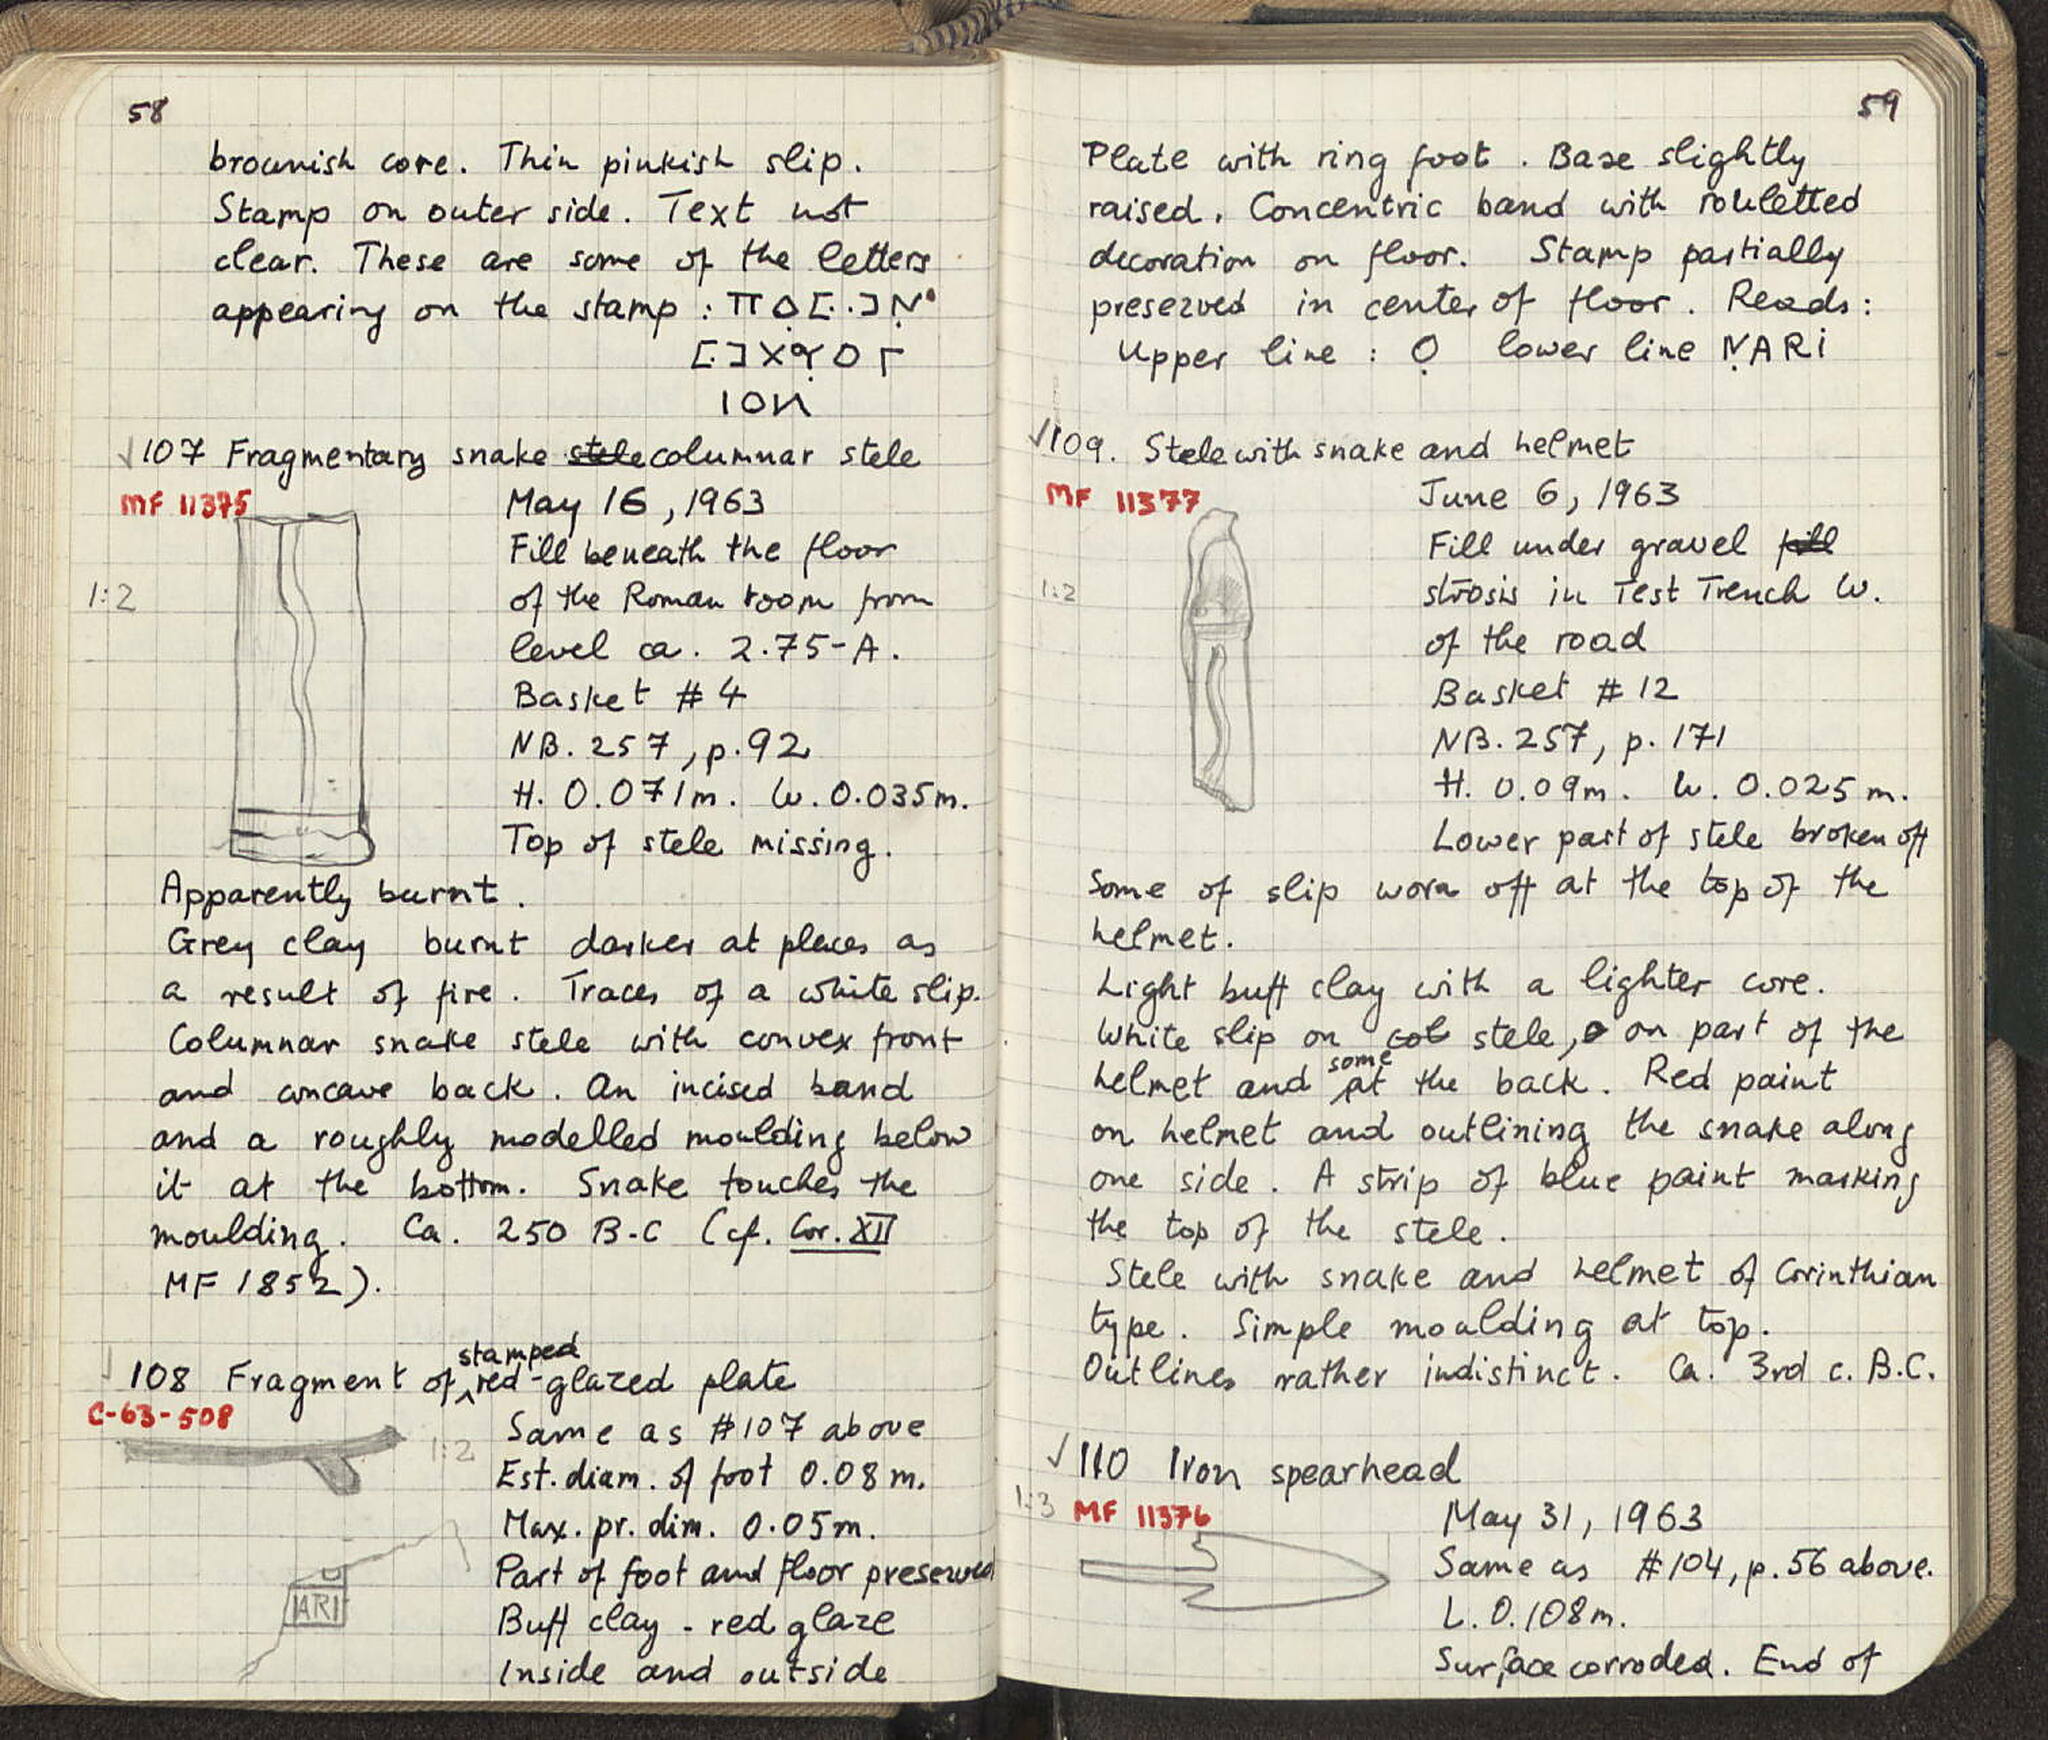 58
brownish core. Thin pinkish slip.
Stamp on outer side. Text not
clear. These are some of the letters
appearing on the stamp : Π Ο̣ [. .] Ν̣
[.] Χ Ϙ̣ Ο Γ
ΙΟΝ
✓107 Fragmentary snake stele columnar stele
MF 11375
May 16, 1963
1:2
Fill beneath the floor
of the Roman room from
level ca. 2.75-A.
Basket # 4
NB. 257, p. 92
H. 0.071m. W. 0.035m.
Top of stele missing.
Apparently burnt.
Grey clay burnt darker at places as
a result of fire. Traces of a white slip.
Columnar snake stele with convex front
and concave back. An incised band
and a roughly modelled moulding below
it at the bottom. Snake touches the
moulding. Ca. 250 B.C (cf. Cor. XII
MF 1852).
✓108 Fragment of stamped red-glazed plate
C-63-508
1:2
Same as #107 above
Est. diam. of foot 0.08 m.
Max. pr. dim. 0.05m.
Part of foot and floor preserved
ARI
Buff clay - red glaze
Inside and outside
59
Plate with ring foot. Base slightly
raised. Concentric band with rouletted
decoration on floor. Stamp partially
preserved in center of floor. Reads:
Upper line : Ọ lower line ṆARI
✓109. Stele with snake and helmet
MF 11377
June 6, 1963
1:2
Fill under gravel fill
strosis in Test Trench W.
of the road
Basket # 12
NB. 257, p. 171
H. 0.09m. W. 0.025 m.
Lower part of stele broken off
Some of slip worn off at the top of the
helmet.
Light buff clay with a lighter core.
White slip on col stele, on part of the
helmet and some at the back. Red paint
on helmet and outlining the snake along
one side. A strip of blue paint marking
the top of the stele.
Stele with snake and helmet of Corinthian
type. Simple moulding at top.
Outlines rather indistinct. Ca. 3rd c. B.C.
✓110 Iron spearhead
1:3
MF 11376
May 31, 1963
Same as #104, p. 56 above.
L. 0.108m.
Surface corroded. End of